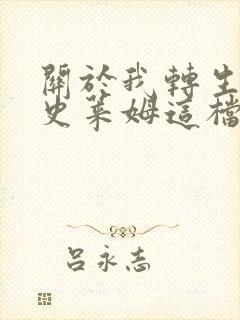 關於我轉生
史萊姆這檔
呂永志